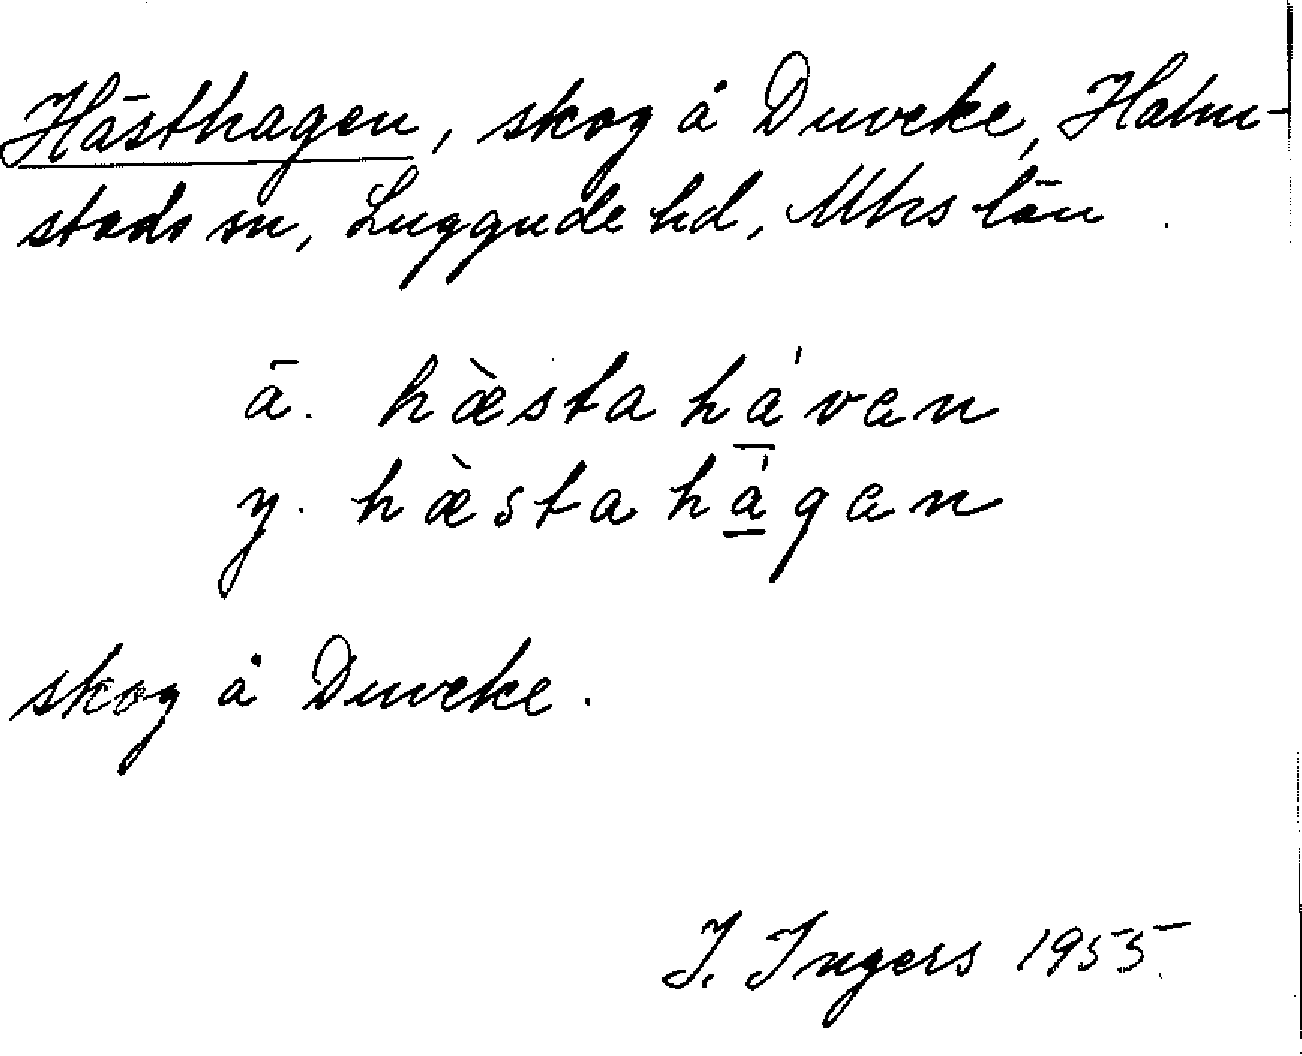 Hästhagen, skog å Duveke, Halm-
stads sn, Luggude hd, Mhs län.
ä. hæ̀sta há̱van
y. hæ̀sta há̱gan
skog å Duveke.
I. Ingers 1955.